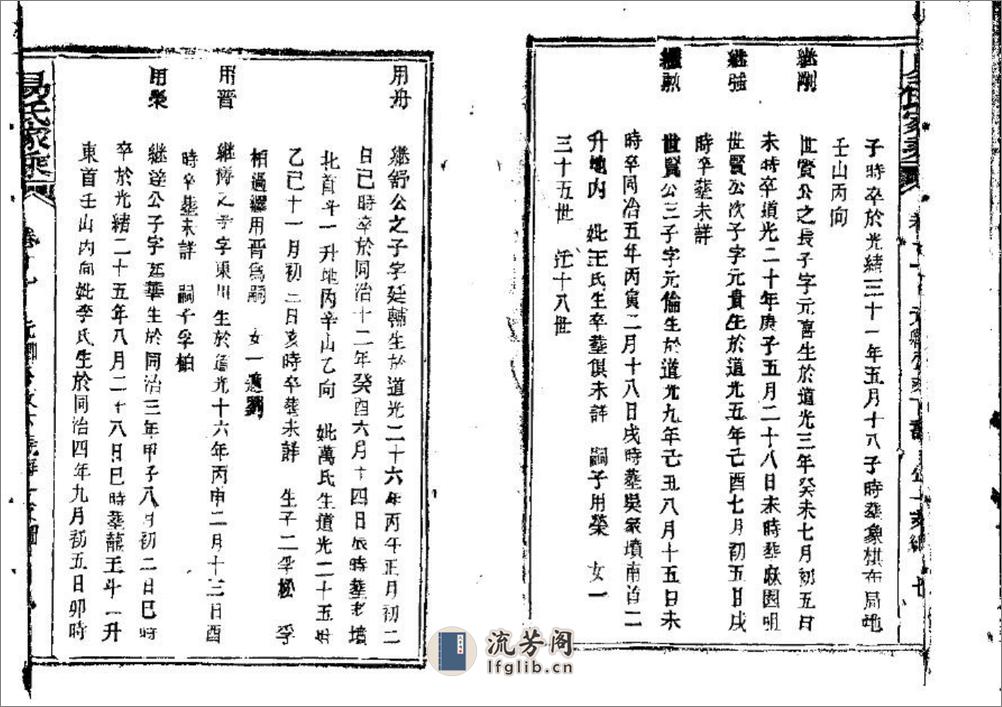 子時卒於光緒三十一年五月十八子時塟象棋布局地
壬山丙向
继剛 世賢公之長子字元喜生於道光三年癸未七月初五日
未時卒道光二十年庚子五月二十八日未時塟麻園咀
继强 世賢公次子字元貴生於道光五年乙酉七月初五日戌
時卒塟未詳
继勲 世賢公三子字元倫生於道光九年己丑八月十五日未
時卒同治五年丙寅二月十八日戌時塟吳家墳南首二
升地內 妣王氏生卒塟俱未詳 嗣子用榮 女一
三十五世 十八世
用舟 继舒公之子字廷輔生於道光二十六年丙午正月初二
日巳時卒於同治十二年癸酉六月十四日辰時塟老墳
北首斗一升地丙辛山乙向 妣萬氏生道光二十五年
乙巳十一月初二日亥時卒塟未詳 生子二孚松 孚
柏過繼用晋爲嗣 女一適劉
用晋 继傅之子字東川生於道光十六年丙申二月十三日酉
時卒塟未詳 嗣子孚柏
用榮 继達公子字廷華生於同治三年甲子八月初二日巳時
卒於光緒二十五年八月二十八日巳時塟龍王斗一升
東首壬山丙向妣李氏生於同治四年九月初五日卯時
易氏家乘
流芳阁
lfglib.cn